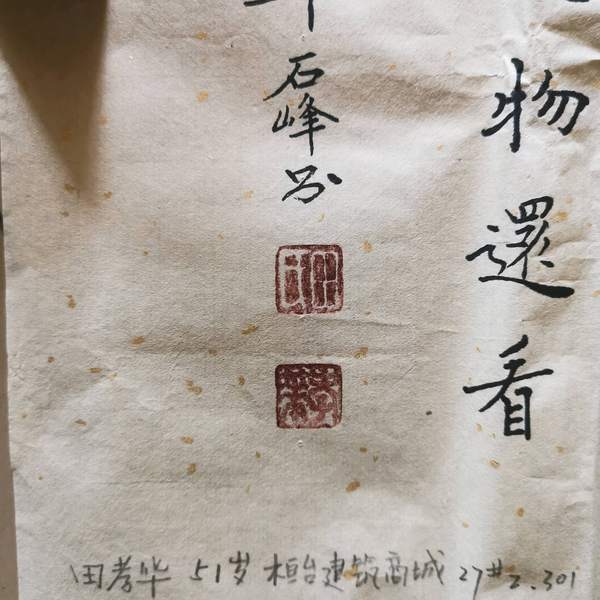 物還看
石峰书
田孝华 51岁 桓台建筑商城 27# 2.301